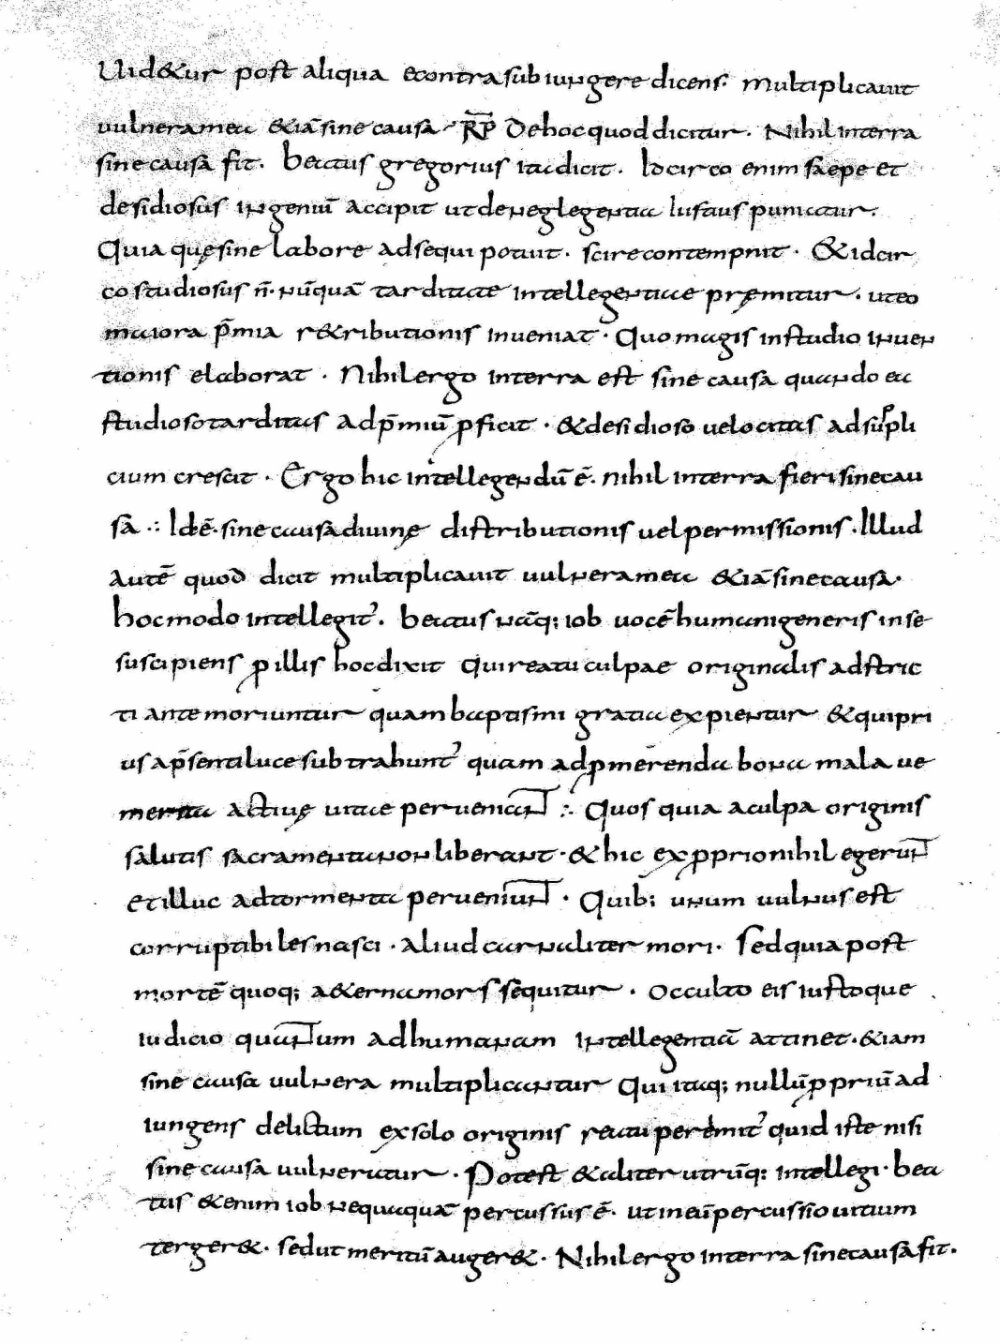 Uid&ur post aliqua econtra subiungere dicens. multiplicauit
uulnera mea &iā sine causa · R̅P̅ De hoc quod dicitur. Nihil in terra
sine causa fit. beatus gregorius ita dicit. Idcirco enim saepe et
desidiosus ingeniū accipit ut de neglegentia iustius puniatur.
Quia quę sine labore adsequi potuit. scire contempnit. &idcir
co studiosus n̄. nūquā tarditate intellegentiae pręmitur. ut eo
maiora p̄mia r&ributionis inueniat. Quo magis in studio inuen
tionis elaborat. Nihil ergo in terra est sine causa quando &a
studioso tarditas ad p̄miū ꝓficit. &desidioso uelocitas ad suppli
cium crescit. Ergo hic intellegendū ē. nihil in terra fieri sine cau
sa ∴ Idē. sine causa diuinę distributionis uel permissionis. Illud
autē quod dicit multiplicauit uulnera mea &iā sine causa.
hoc modo intellegit᾽. beatus nāq; iob uocē humani generis in se
suscipiens ꝓ illis hoc dixit qui reatu culpae originalis adstric
ti ante moriuntur quam baptismi gratia expientur &qui pri
us a p̄senti luce subtrahunt᾽ quam ad ꝓmerenda bona malaue
merita actiuę uitae perueniant ∴ Quos quia a culpa originis
salutis sacramenta non liberant. &hic ex ꝓprio nihil egerunt
et illuc ad tormenta perueniunt. Quib; unum uulnus est
corruptibiles nasci. aliud carnaliter mori. Sed quia post
mortē quoq; a&erna mors sequitur. occulto eis iustoque
iudicio quantum ad humanam intellegentiā attinet. &iam
sine causa uulnera multiplicantur Qui itaq; nullū ꝓpriū ad
iungens delictum ex solo originis reatu peremit᾽ quid iste nisi
sine causa uulneratur. Potest &aliter utrūq; intellegi. bea
tus &enim iob nequaquā percussus ē. ut in eū percussio uitium
terger&. sed ut meritū auger&. Nihil ergo in terra sine causa fit.